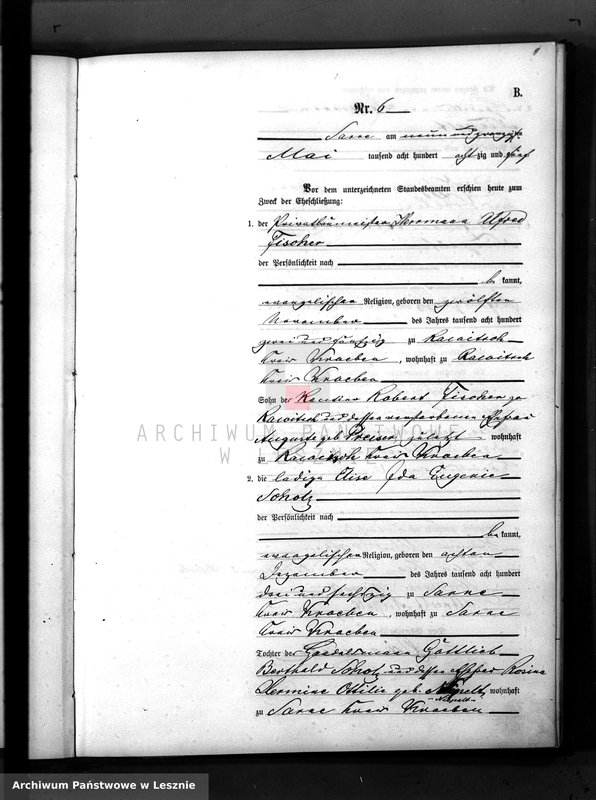 B.
Nr. 6
Sarne am neun und zwanzigsten
Mai tausend acht hundert achtzig und fünf
Vor dem unterzeichneten Standesbeamten erschien heute zum
Zweck der Eheschließung:
1. der Privatbaumeister Hermann Alfred
Fischer
der Persönlichkeit nach
be kannt,
evangelischer Religion, geboren den zwölften
November des Jahres tausend acht hundert
zwei und fünfzig zu Rawitsch
Kreis Kroeben, wohnhaft zu Rawitsch
Kreis Kroeben
Sohn des Rentier Robert Fischer zu
Rawitsch und dessen verstorbenen Ehefrau
Auguste geb. Preuser zuletzt wohnhaft
zu Rawitsch Kreis Kroeben
2. die ledige Elise Ida Eugenie
Scholz
der Persönlichkeit nach
be kannt,
evangelischer Religion, geboren den achten
Dezember des Jahres tausend acht hundert
drei und sechszig zu Sarne
Kreis Kroeben, wohnhaft zu Sarne
Kreis Kroeben
Tochter des Handelsmann Gottlieb
Berthold Scholz und dessen Ehefrau Rosina
Hermine Ottilie geb. wohnhaft
zu Sarne Kreis Kroeben
ARCHIWUM PAŃSTWOWE
W LESZNIE
Archiwum Państwowe w Lesznie